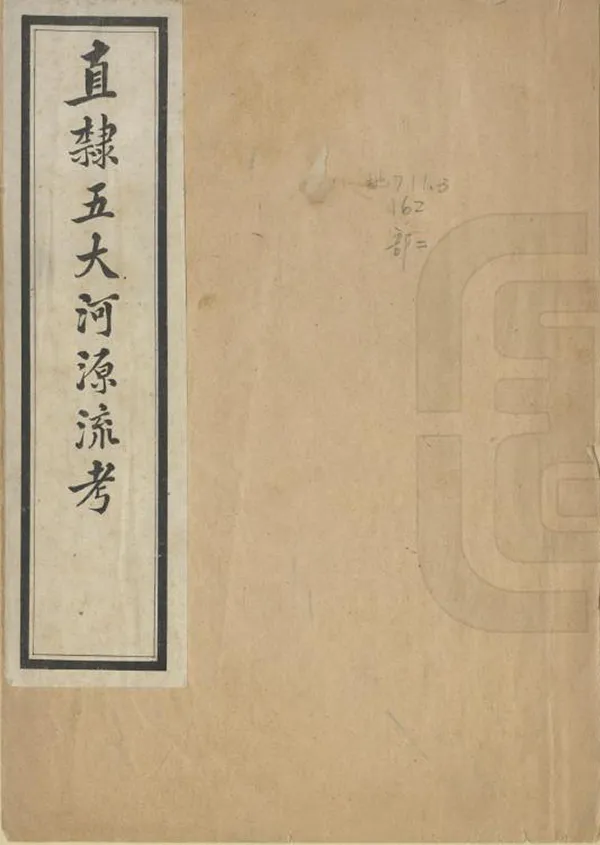 直隸五大河源流考
地711.3
162
部二